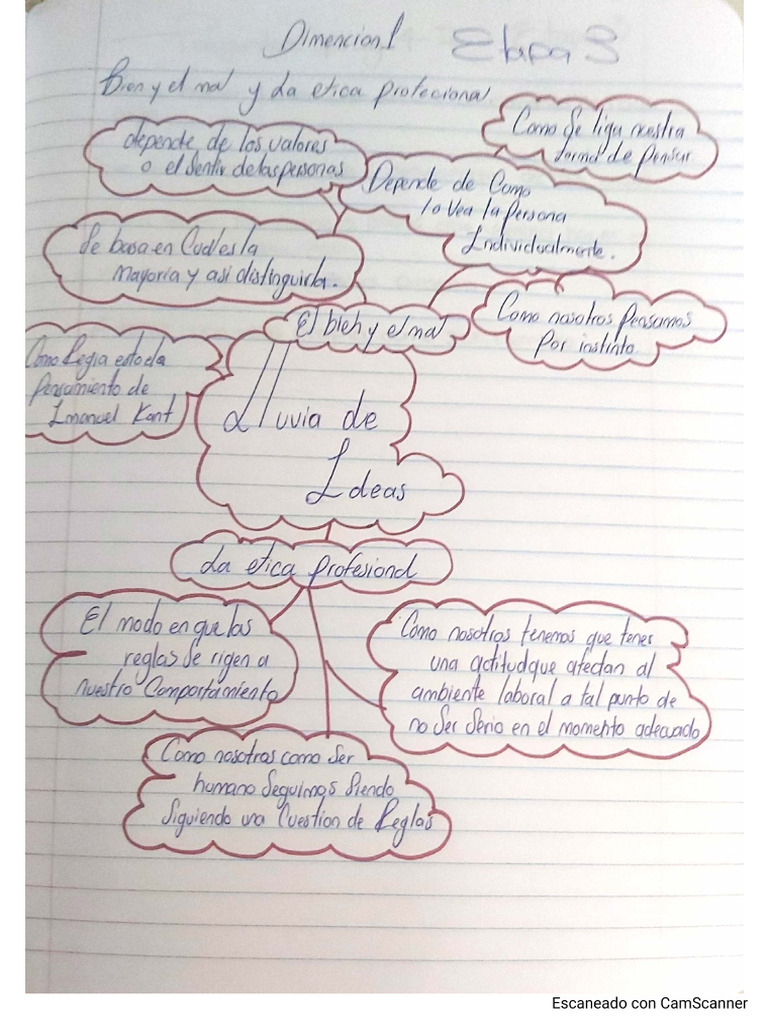 Dimencion 1 Etapa 3
Bien y el mal y La etica profecional
Como Se liga nuestra
forma de Pensar
depende de los valores
o el Sentir de las personas
Depende de Como
lo Vea la Persona
Individualmente.
Se basa en Cual es la
Mayoria y asi distinguirla.
El bien y el mal
Como nosotros Pensamos
Por instinto
Como Regia esto da
Pensamiento de
Imanuel Kant
Lluvia de
Ideas
La etica Profesional
El modo en que las
reglas Se rigen a
nuestro Comportamiento
Como nosotros tenemos que tener
una actitud que afectan al
ambiente laboral a tal punto de
no Ser Serio en el momento adecuado
Como nosotros como Ser
humano Seguimos Siendo
Siguiendo una Cuestion de Reglas
Escaneado con CamScanner